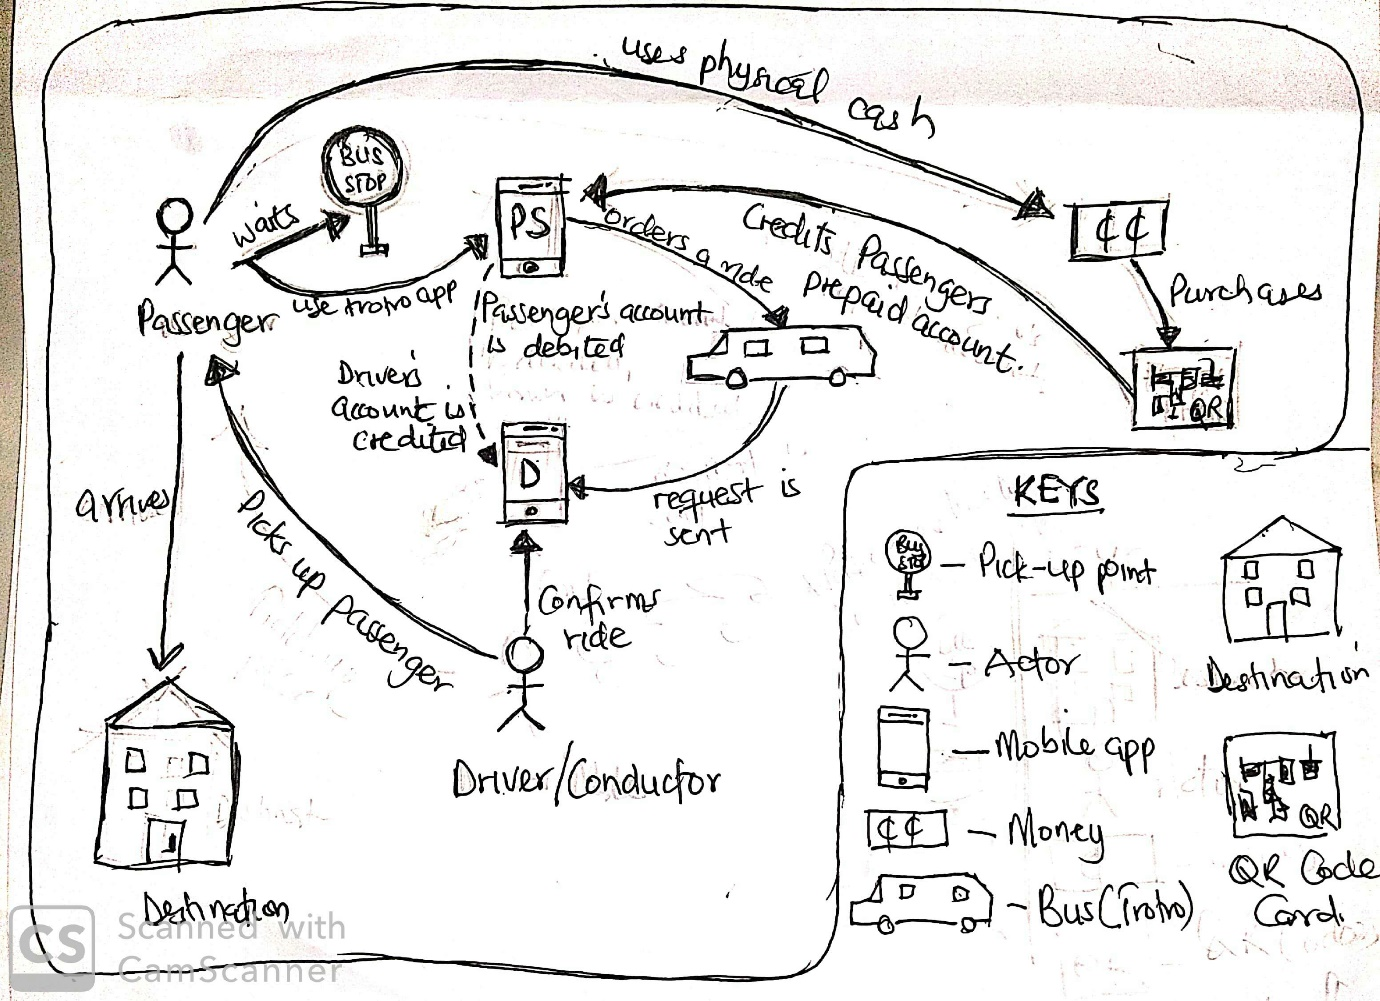 uses physical
cash
BUS
STOP
waits
PS
orders a ride
Credits Passengers
prepaid account.
¢ ¢
Purchases
QR
use trotro app
Passenger
Passenger's account
is debited
Driver's
account is
credited
D
request is
sent
arrives
Picks up passenger
Confirms
ride
Driver/Conductor
Destination
KEYS
BUS
STOP
- Pick-up point
- Actor
- Mobile app
¢ ¢
- Money
- Bus (Trotro)
Destination
QR
QR Code
Card.
CS
Scanned with
CamScanner